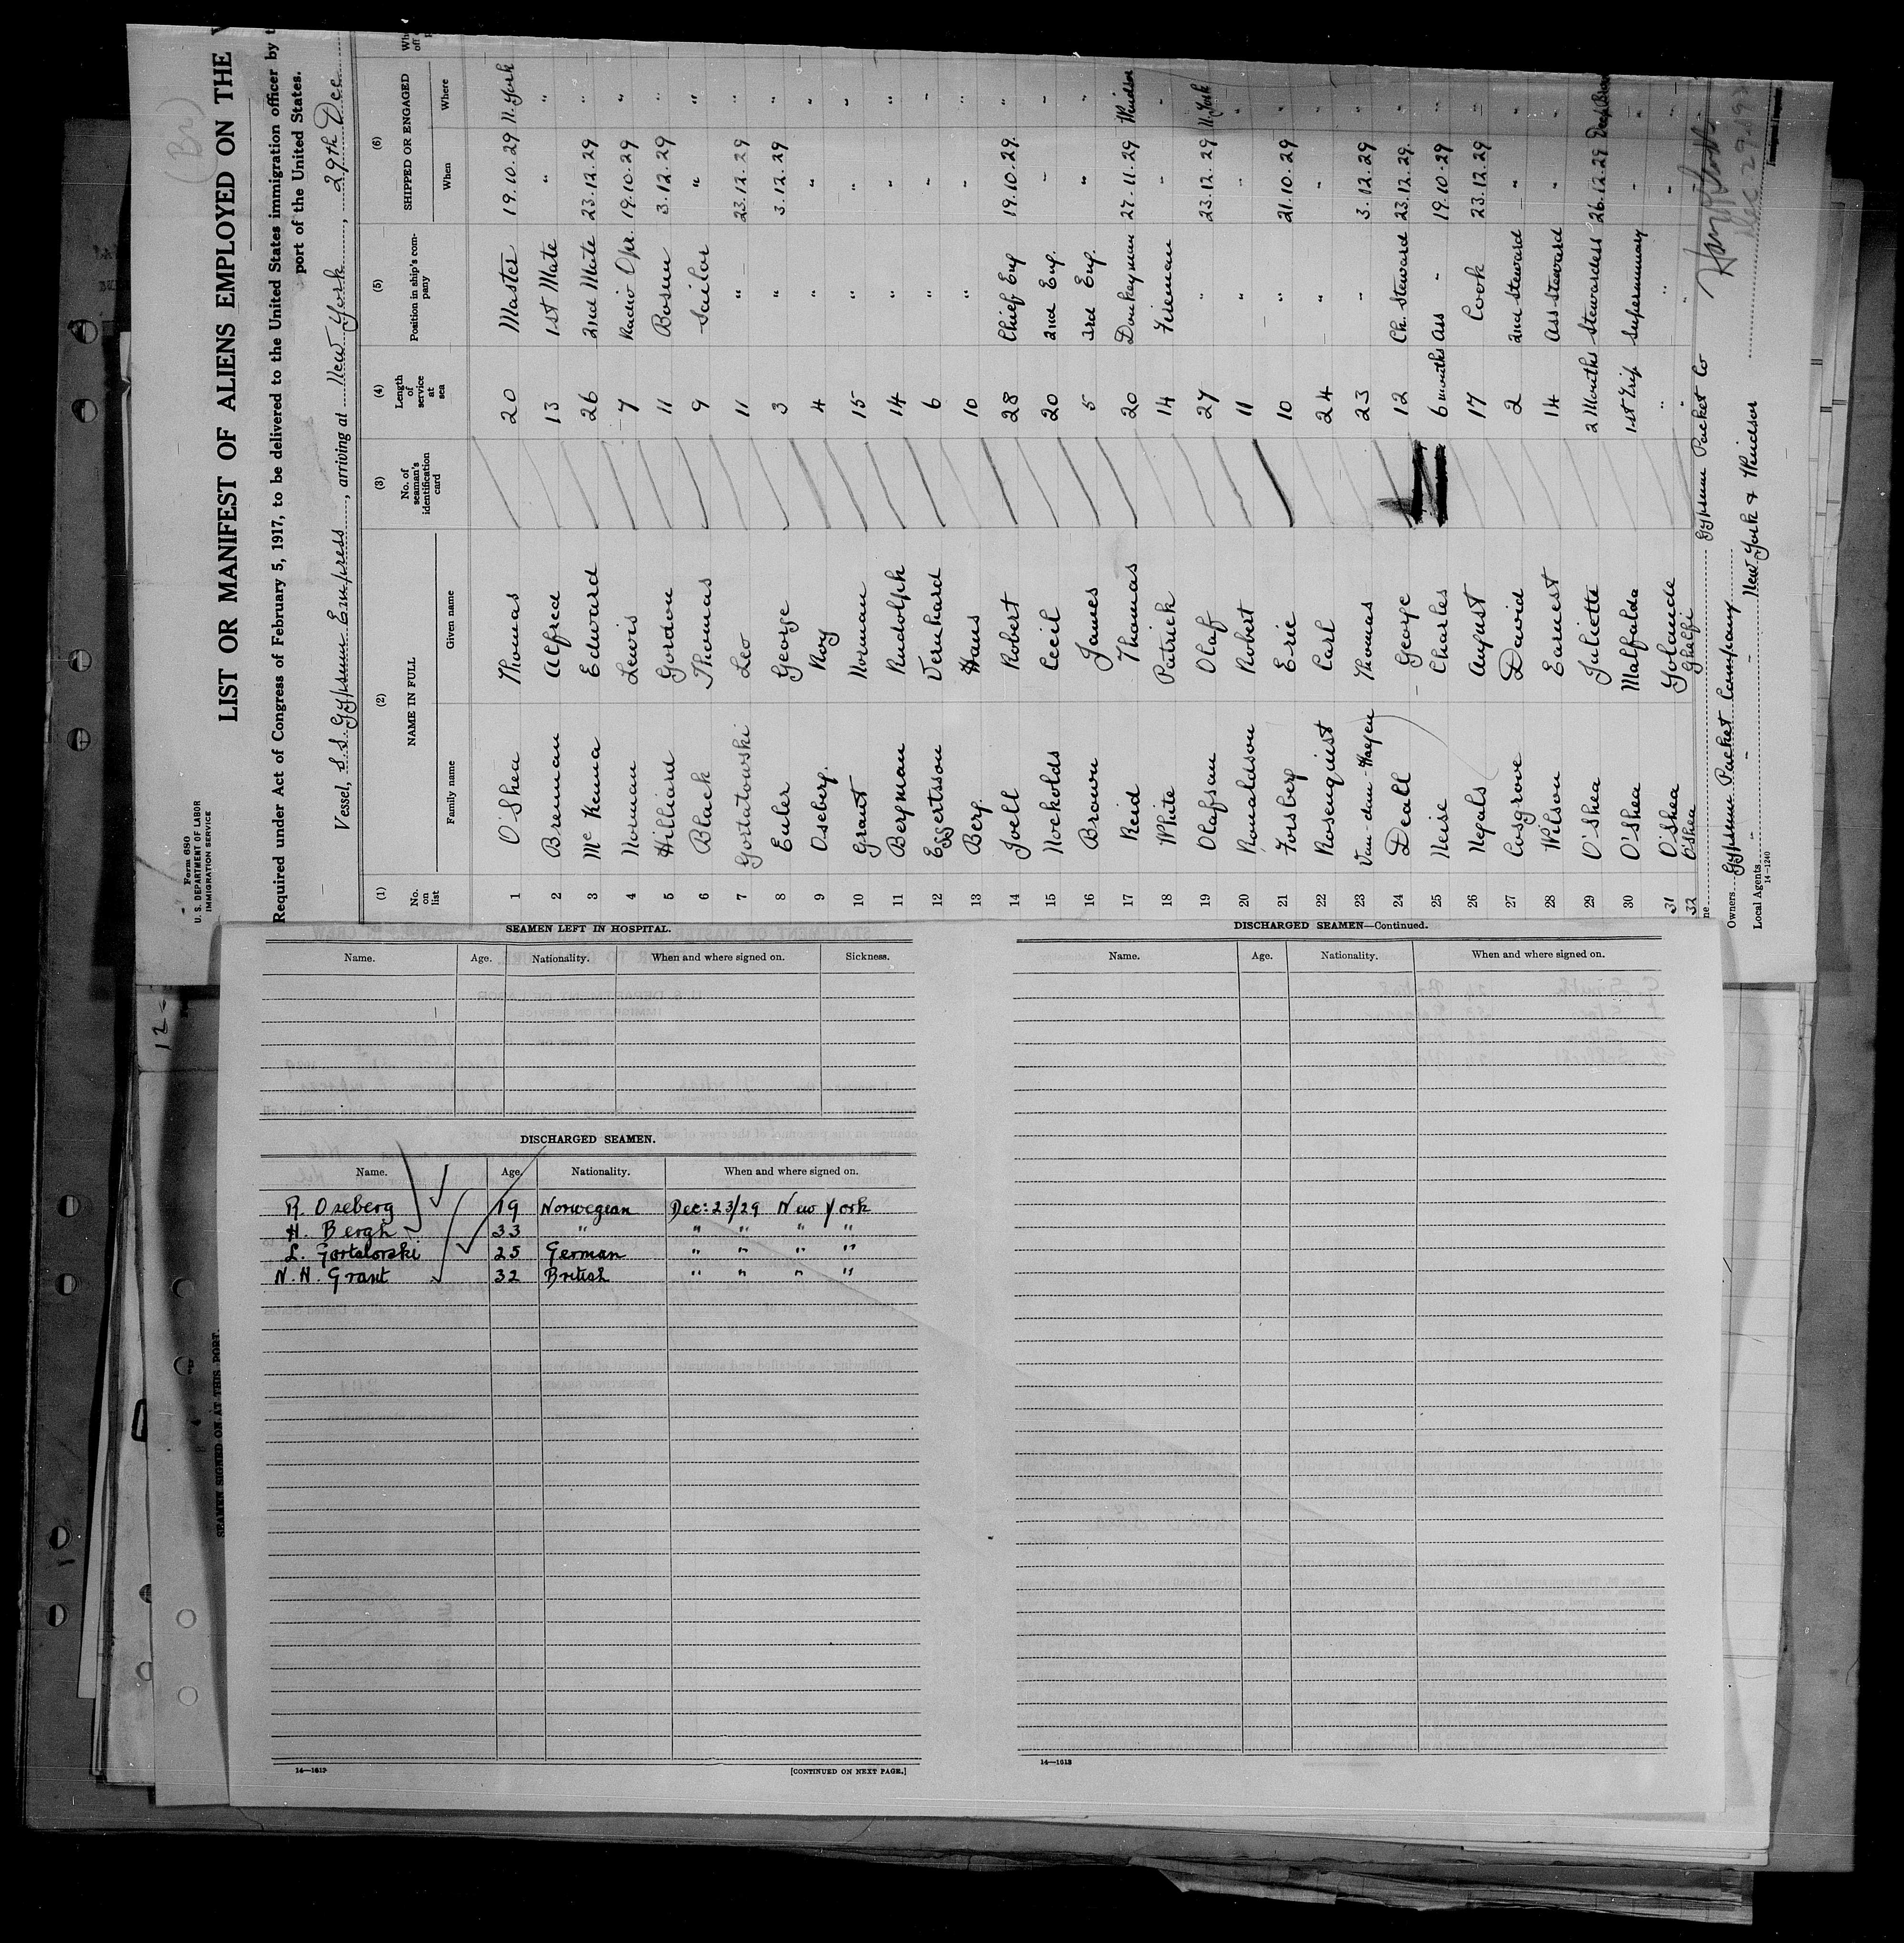 Form 680
U. S. DEPARTMENT OF LABOR
IMMIGRATION SERVICE
(Br)
LIST OR MANIFEST OF ALIENS EMPLOYED ON THE
Required under Act of Congress of February 5, 1917, to be delivered to the United States immigration officer by
port of the United States.
Vessel, S.S. Gypsum Empress, arriving at New York, 29th Dec
(1) (2) (3) (4) (5) (6)
No. on list NAME IN FULL No. of seaman's identification card Length of service at sea Position in ship's company SHIPPED OR ENGAGED
Family name Given name When Where
1 O'Shea Thomas 20 Master 19.10.29 N. York
2 Brennan Alfred 13 1st Mate " "
3 Mc Kenna Edward 26 2nd Mate 23.12.29 "
4 Norman Lewis 7 Radio Opr. 19.10.29 "
5 Hilliard Gordon 11 Bosun 3.12.29 "
6 Black Thomas 9 Sailor " "
7 Gortatowski Leo 11 " 23.12.29 "
8 Euler George 3 " 3.12.29 "
9 Oseberg. Roy 4 " " "
10 Grant Norman 15 " " "
11 Bergman Rudolph 14 " " "
12 Eggertsson Vernhard 6 " " "
13 Berg. Hans 10 " " "
14 Joell Robert 28 Chief Eng 19.10.29. "
15 Nockolds Cecil 20 2nd Eng. " "
16 Brown James 5 3rd Eng. " "
17 Reid Thomas 20 Donkeyman 27.11.29 Windsor
18 White Patrick 14 Fireman " "
19 Olafson Olaf 27 " 23.12.29 N. York
20 Ronaldson Robert 11 " " "
21 Forsberg Eric 10 " 21.10.29 "
22 Rosenquist Carl 24 " " "
23 Van-den-Heyen Thomas 23 " 3.12.29 "
24 Deall George 12 Ch. Steward 23.12.29. "
25 Neise Charles 6 months Ass " 19.10.29 "
26 Negals August 17 Cook 23.12.29 "
27 Cosgrove David 2 2nd Steward " "
28 Wilson Earnest 14 Ass Steward " "
29 O'Shea Juliette 2 Months Stewardess 26.12.29
30 O'Shea Malfalda 1st Trip Supernumary " "
31 O'Shea Yolande " " " "
32 O'Shea Ghelfi " "
Gypsum Packet Co
Owners Gypsum Packet Company
Local Agents " " " New York & Windsor
14-1240
Dec 29 192
SEAMEN SIGNED ON AT THIS PORT.
SEAMEN LEFT IN HOSPITAL.
Name. Age. Nationality. When and where signed on. Sickness.
DISCHARGED SEAMEN.
Name. Age. Nationality. When and where signed on.
R. Oseberg 19 Norwegian Dec: 23/29 New York
H. Bergh 33 " " " " "
L. Gortalorski 25 German " " " "
N. H. Grant 32 British " " " "
14—1613 [CONTINUED ON NEXT PAGE.]
DISCHARGED SEAMEN—Continued.
Name. Age. Nationality. When and where signed on.
14—1613